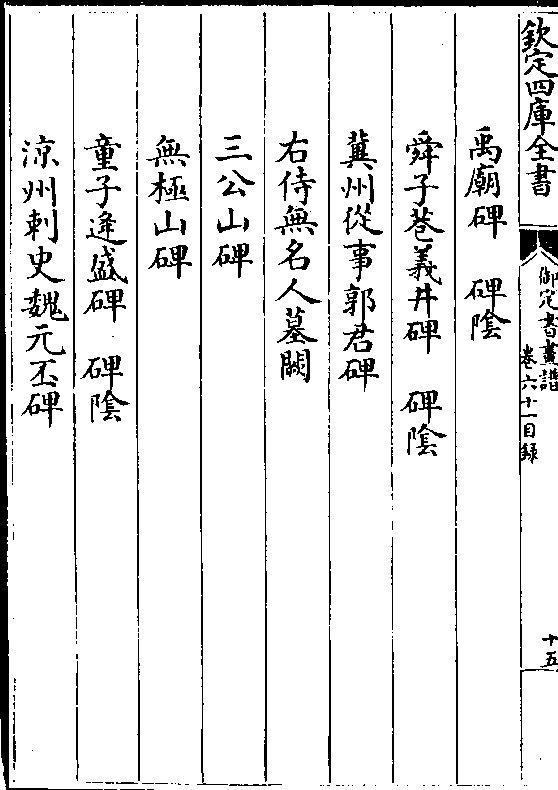 欽定四庫全書
御定書畫譜
卷六十一目録
十五
禹廟碑　碑隂
舜子巷義井碑　碑隂
冀州從事郭君碑
右侍無名人墓闕
三公山碑
無極山碑
童子逄盛碑　碑隂
涼州刺史魏元丕碑